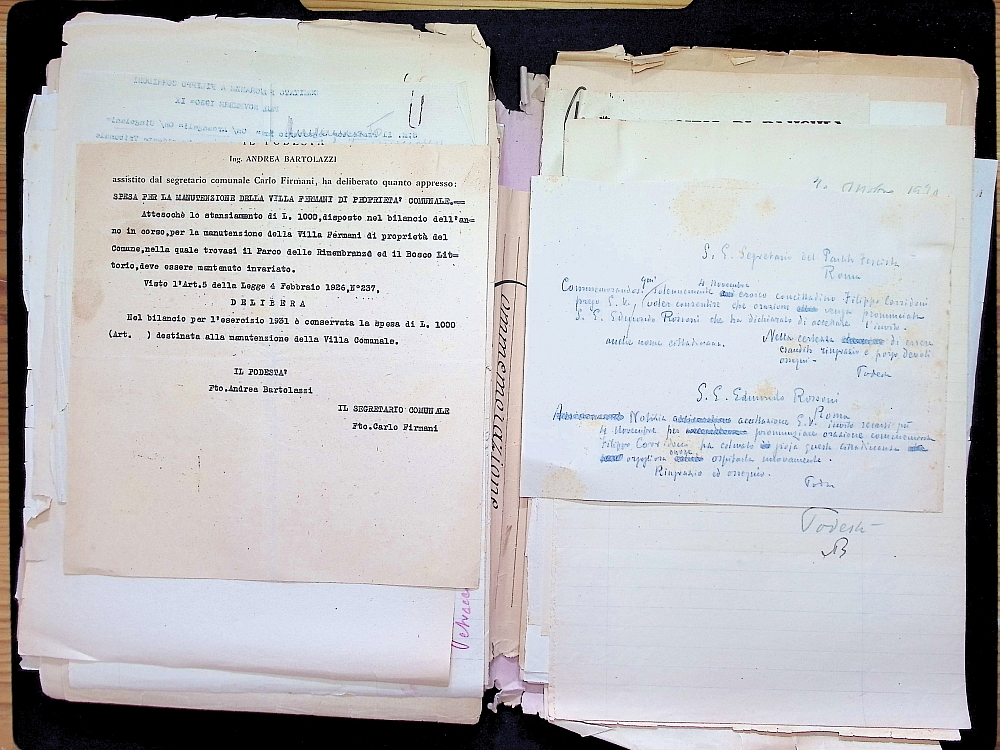 COMITATO ONORANZE A FILIPPO CORRIDONI
IL PODESTA'
Ing. ANDREA BARTOLAZZI
assistito dal segretario comunale Carlo Firmani, ha deliberato quanto appresso:
SPESA PER LA MANUTENZIONE DELLA VILLA FERMANI DI PROPRIETA' COMUNALE.=
Attesochè lo stanziamento di L. 1000,disposto nel bilancio dell'an=
no in corso,per la manutenzione della Villa Fermani di proprietà del
Comune,nella quale trovasi il Parco delle Rimembranze ed il Bosco Lit=
torio,deve essere mantenuto invariato.
Visto l'Art.5 della Legge 4 Febbraio 1926,N°237,
DELIBERA
Nel bilancio per l'esercizio 1931 è conservata la spesa di L. 1000
(Art. ) destinata alla manutenzione della Villa Comunale.
IL PODESTA'
Fto.Andrea Bartolazzi
IL SEGRETARIO COMUNALE
Fto.Carlo Firmani
commemorazione
S. E. Segretario del Partito Fascista
Roma
4 Novembre
Commemorandosi qui solennemente eroico concittadino Filippo Corridoni
prego E.V. voler consentire che orazione venga pronunciata
S. E. Edmondo Rossoni che ha dichiarato di accettare l'invito.
Nella certezza di essere
esaudito ringrazio e porgo devoti
ossequi
anche nome cittadinanza.
Podestà
S. E. Edmondo Rossoni
Roma
Notizia accettazione E.V. invito recarsi qui
4 Novembre per pronunziare orazione commemorativa
Filippo Corridoni ha colmato gioja questa cittadinanza
orgogliosa onore ospitarla nuovamente.
Ringrazio ed ossequio.
Podestà
Podestà
AB